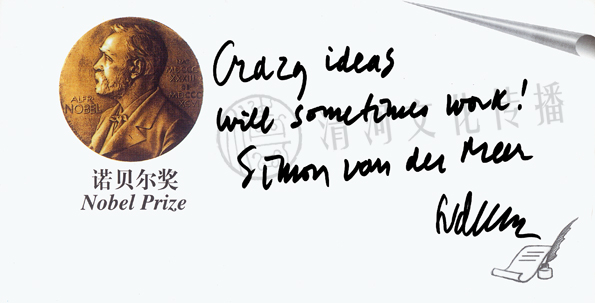 Crazy ideas
will sometimes work!
Simon van der Meer
清河文化传播
ALFR
NOBEL
诺贝尔奖
Nobel Prize